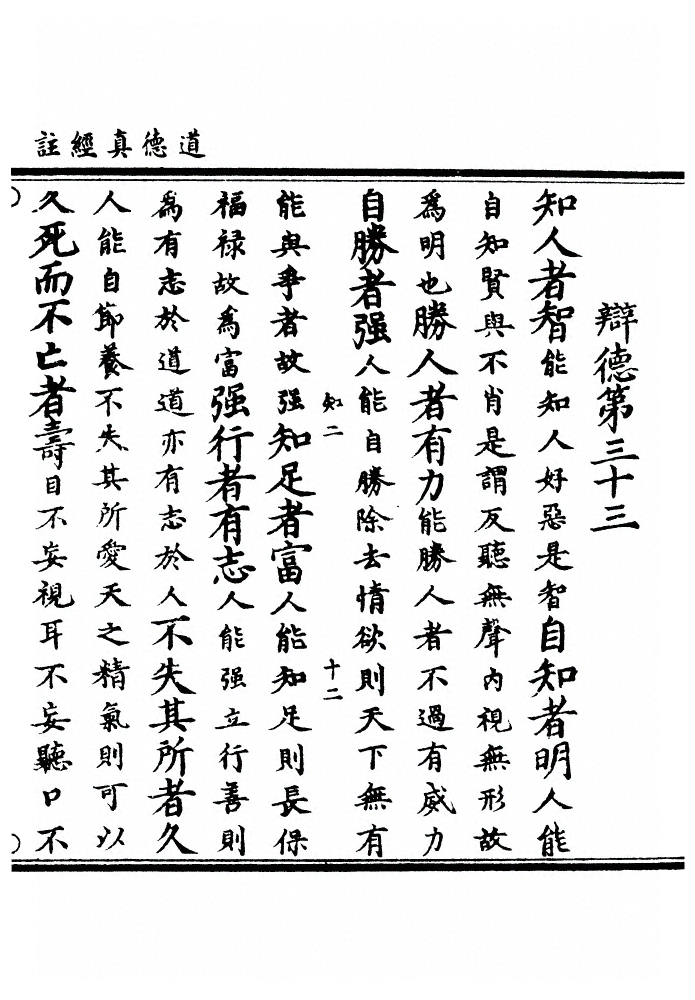 道德真經註
辯德第三十三
知人者智能知人好惡是智自知者明人能
自知賢與不肖是謂反聽無聲内視無形故
爲明也勝人者有力能勝人者不過有威力
自勝者强人能自勝除去情欲則天下無有
知二
十二
能與爭者故强知足者富人能知足則長保
福禄故爲富强行者有志人能强立行善則
爲有志於道道亦有志於人不失其所者久
人能自節養不失其所愛天之精氣則可以
久死而不亡者壽目不妄視耳不妄聽口不